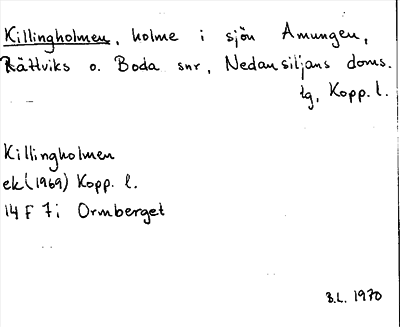 Killingholmen, holme i sjön Amungen,
Rättviks o. Boda snr, Nedansiljans doms.
lg, Kopp. l.
Killingholmen
ek (1969) Kopp. l.
14 F 7 i Ormberget
B.L. 1970